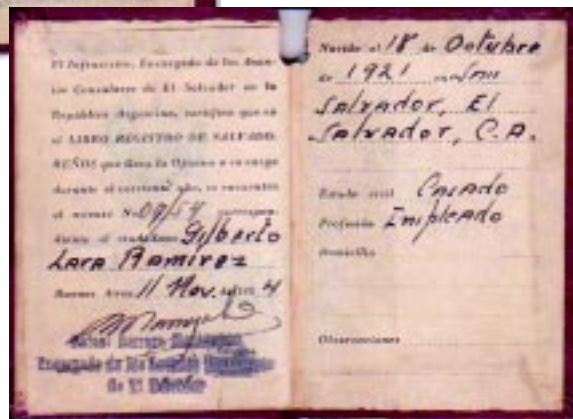 El Infrascrito, Encargado de los Asun-
tos Consulares de El Salvador en la
República Argentina, certifica que en
el LIBRO REGISTRO DE SALVADO-
REÑOS que lleva la Oficina a su cargo
durante el corriente año, se encuentra
el asiento No. 09/54
diente al ciudadano Gilberto
Lara Ramirez
Buenos Aires 11 Nov. 4
Encargado de los
de El Salvador
Nacido el 18 de Octubre
de 1921 en San
Salvador, El
Salvador, C.A.
Estado civil Casado
Profesión Empleado
Domicilio
Observaciones